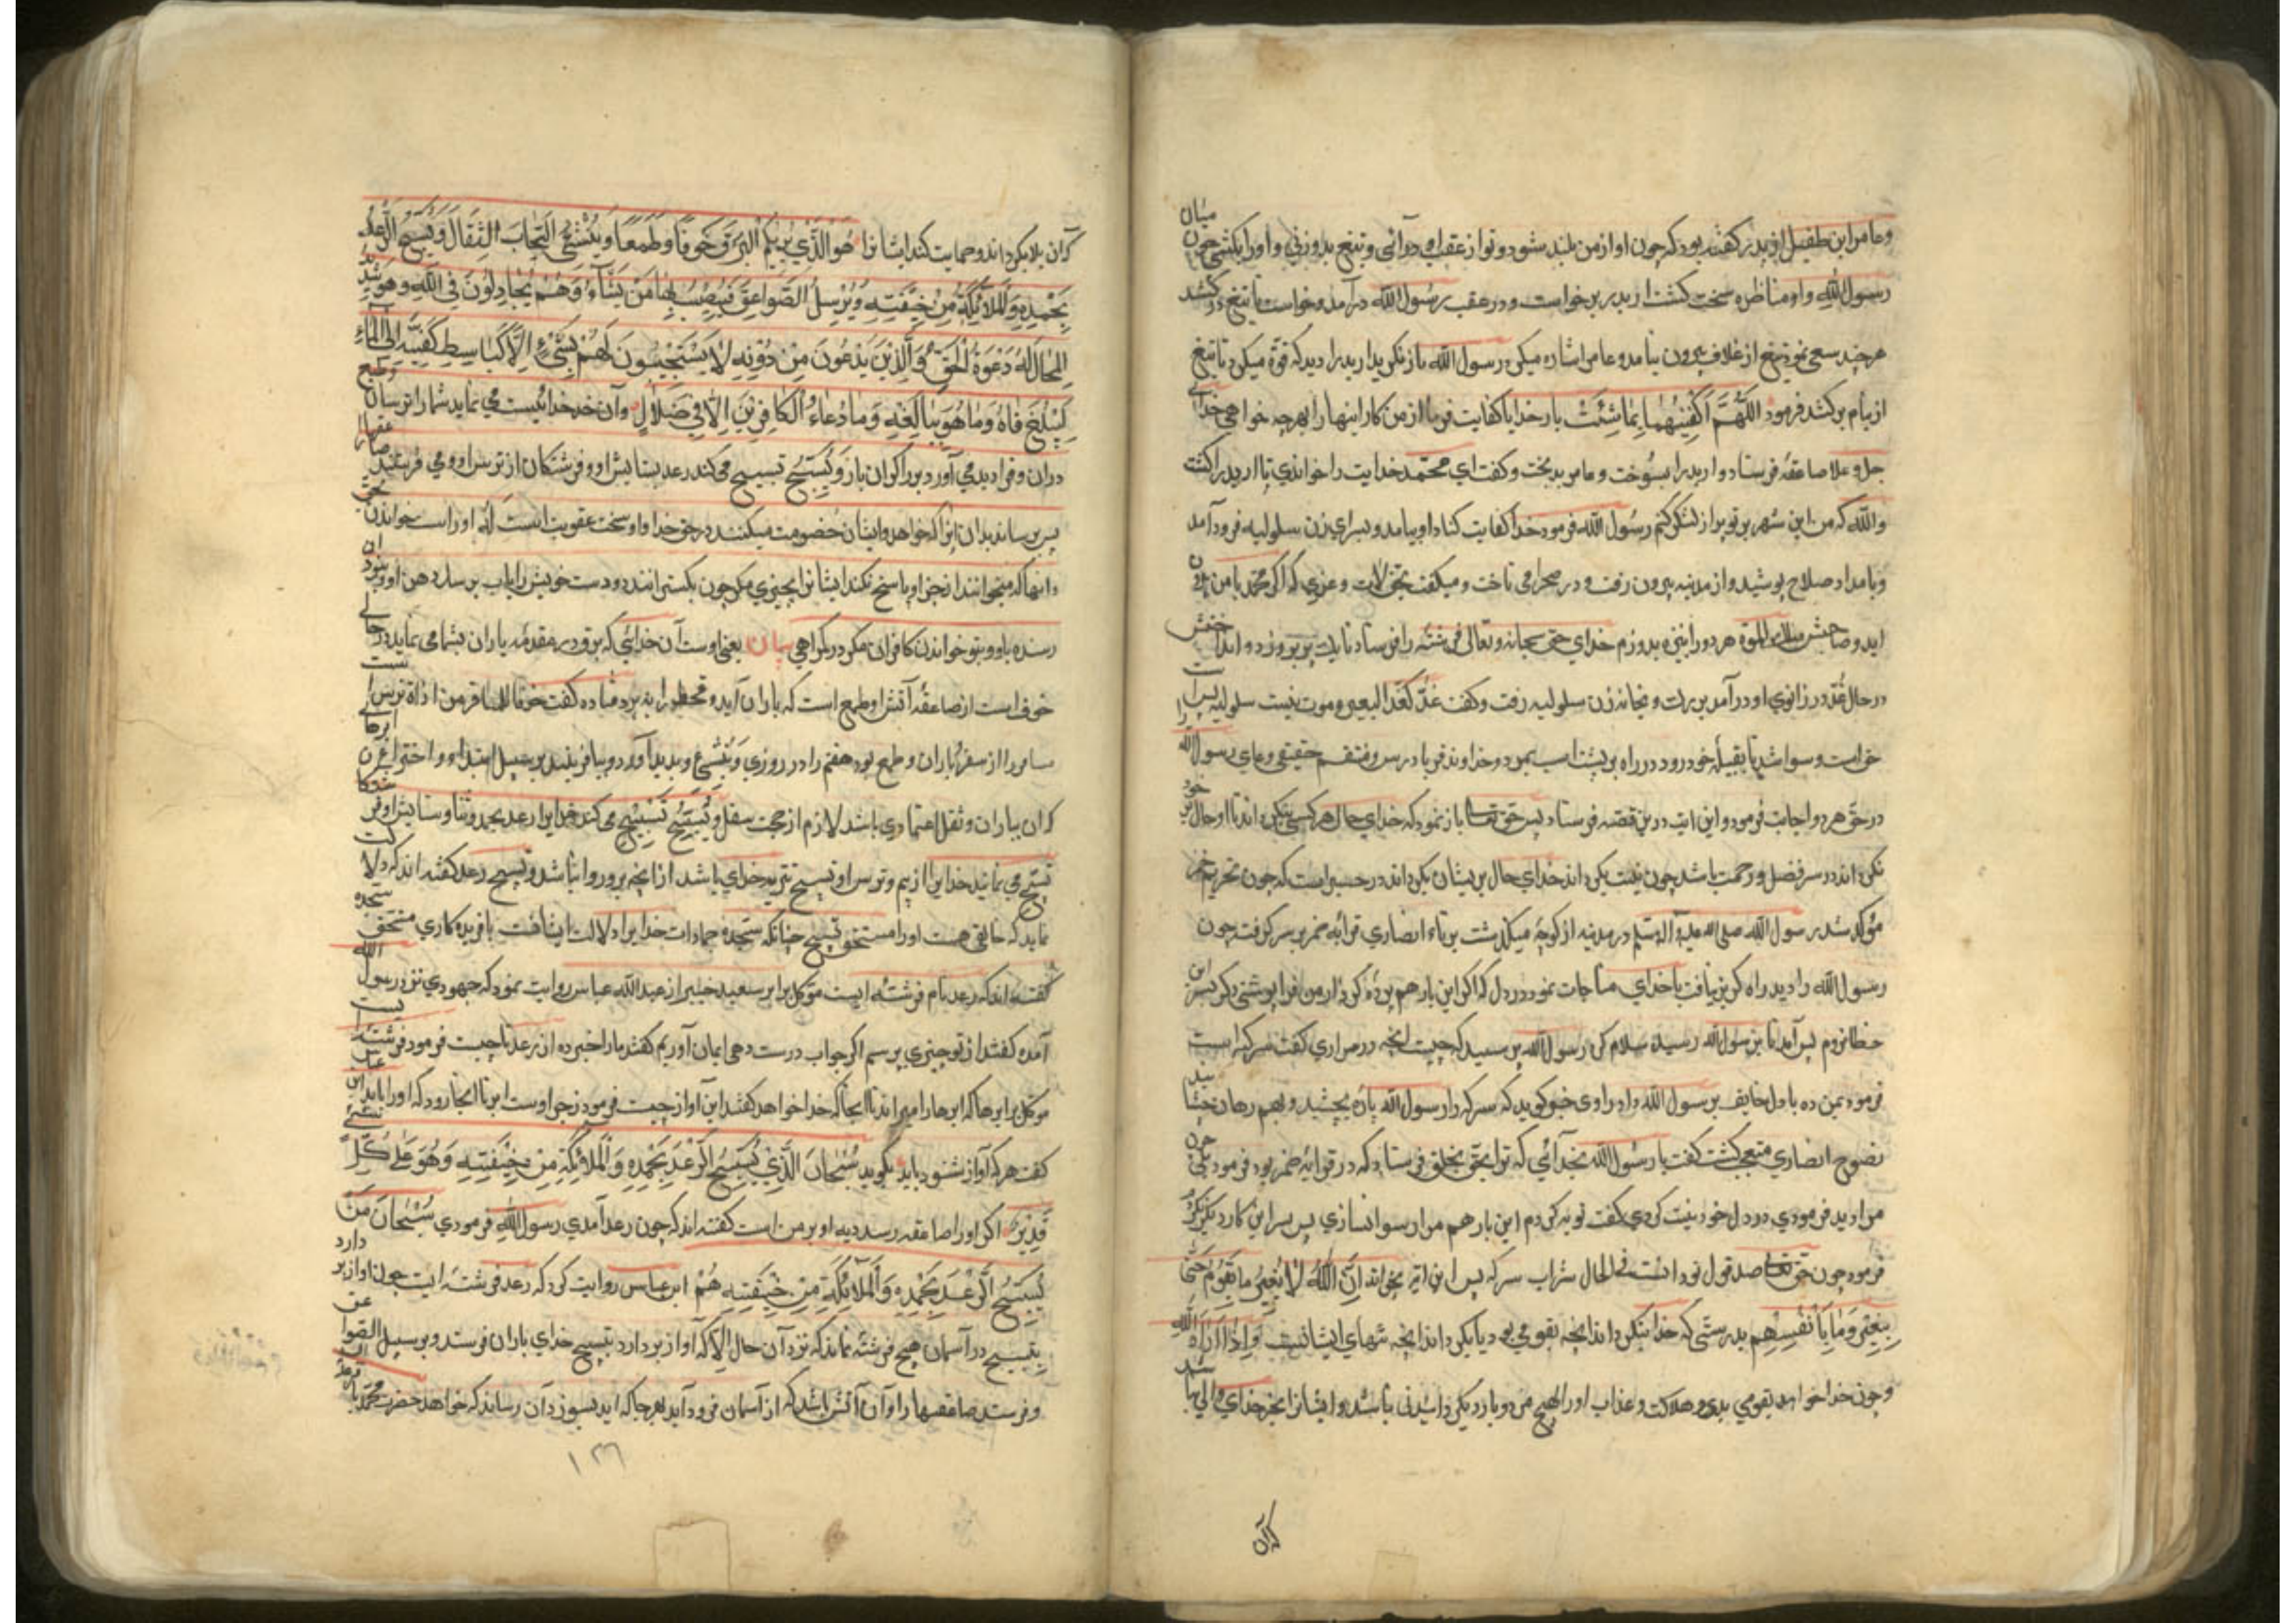 وعامر ابن طفیل اربد را گفته بود که چون اواز من بلند شود و تو از عقب او درآئی و تیغ بدو زنی و او را بکشی چون میان
رسول الله و او مناظره سخت کشت اربد برخواست و در عقب رسول الله درآمد و خواست تا تیغ برکشد
هرچند سعی نمود تیغ از غلاف بیرون نیامد و عامر اشاره میکرد رسول الله باز نکرید اربد را دید که قوة میکرد تا تیغ
از نیام برکشد فرمود اللَّهُمَّ اكْفِنِيهُمَا بِمَا شِئْتَ بار خدایا کفایت فرما از من کار اینها را بهرچه خواهی خدای
جل وعلا صاعقه فرستاد و اربد را بسوخت و عامر بدبخت و کفت ای محمد خدایت را خواندی تا اربد را کشت
والله که من این شهر بر تو پر از لشکر کنم رسول الله فرمود خدا کفایت کناد او بیامد و بسرای زن سلولیه فرود آمد
و بامداد صلاح پوشید و از مدینه بیرون رفت و در صحرا می تاخت و میکفت بحق لات و عزی که اکر محمد با من
اید و صاحبش ملک الموة هر دو را بنیزه بدوزم خدای حق سبحانه و تعالی فرشته را فرستاد تا یک پر برو زد و
در حال غده در زانوی او درآمد برکشت و بخانه زن سلولیه رفت و کفت غدة کغدة البعیر و موت بیت سلولیه
خواست و سوار شد تا بقبیله خود رود در راه بر پشت اسب بمرد و خداوند فریادرس و منتقم حقیقی دعای رسول الله را
در حق هر دو اجابت فرمود و این ایت درین قصه فرستاد پس حق تعالی باز نمود که خدای حال هرکس بنکرداند تا او حال خود
نکرداند در سر فضل و رحمت باشد چون نیت بکرداند خدای حال بریشان بکرداند در خبر است که چون تحریم خمر
مؤکد شد رسول الله صلی الله علیه و آله وسلم در مدینه از کوچه میکذشت برناء انصاری قرابه خمر بر سر کرفت چون
رسول الله را دید راه کریز نیافت با خدای مناجات نمود در دل که اکر این بار هم پرده کرم از من فرا پوشی دیکر بسر این
خطا نروم پس آمد تا بر رسول الله رسید سلام کرد رسول الله پرسید که چیست انچه در سر داری کفت سرکه است
فرمود بمن ده با دل خایف بر رسول الله داد راوی خبر کوید که سرکه را رسول الله پاره بچشید و بهم رهان چشانید
نصوح انصاری متعجب کشت کفت یا رسول الله بخدائی که ترا بحق بخلق فرستاد که در قرابه خمر بود فرمود چون
مرا دید فرمودی در دل خود نیت کردی کفت توبه کردم این بار هم مرا رسوا نسازی پس بسر این کار دیکر نکردم
فرمود چون حق تعالی صدق قول تو دانست فی الحال شراب سرکه پس این ایه بخواند اِنَّ اللّٰهَ لَا يُغَيِّرُ مَا بِقَوْمٍ حَتّٰى
يُغَيِّرُوا مَا بِأَنْفُسِهِم بدرستی که خدا بنکرداند انچه بقومی بود تا بکرداند انچه بنفسهای ایشانست وَاِذَا اَرَادَ اللّٰهُ
و چون خدا خواهد بقومی بدی و هلاکت و عذاب او را هیچ مردود بار دیکرانیدنی نباشد و ایشانرا بجز خدای والی نباشد
که آن
که آن بلا بکرداند و حمایت کند ایشانرا هُوَ الَّذِي يُرِيكُمُ الْبَرْقَ خَوْفًا وَطَمَعًا وَيُنْشِئُ السَّحَابَ الثِّقَالَ وَيُسَبِّحُ الرَّعْدُ
بِحَمْدِهِ وَالْمَلَائِكَةُ مِنْ خِيفَتِهِ وَيُرْسِلُ الصَّوَاعِقَ فَيُصِيبُ بِهَا مَنْ يَشَاءُ وَهُمْ يُجَادِلُونَ فِي اللّٰهِ وَهُوَ شَدِيدُ
الْمِحَالِ لَهُ دَعْوَةُ الْحَقِّ وَالَّذِينَ يَدْعُونَ مِنْ دُونِهِ لَا يَسْتَجِيبُونَ لَهُمْ بِشَيْءٍ إِلَّا كَبَاسِطِ كَفَّيْهِ إِلَى الْمَاءِ
لِيَبْلُغَ فَاهُ وَمَا هُوَ بِبَالِغِهِ وَمَا دُعَاءُ الْكَافِرِينَ إِلَّا فِي ضَلَالٍ و آن خدائیست می نماید شما را ترسان و طمع
دران و فرا دید می آورد بر را کران بار وَيُسَبِّحُ تسبیح می کند رعد بستایش او و فرشتکان از ترس او و می فرستد صاعقها را
پس برساند بدان انرا که خواهد و ایشان خصومت میکنند در حق خدا و او سخت عقوبت است لَهُ او راست خواندن بحق
و انها که میخوانند از جز او پاسخ نکند ایشانرا بچیزی مکر چون بکسترانند دو دست خویش را باب برساند دهن او و نبود ان
رسنده باو و نبود خواندن کافران مکر در کمراهی بیان یعنی اوست آن خدائی که برق در مقدمه باران بشما می نماید در حالی
خوف است از صاعقه آتش او و طمع است که باران آید و قحط را ببرد قتاده کفت خوفا للمسافر من اذاة ترس است
مسافر را از سفر باران و طمع بود مقیم را در روزی وَيُنْشِئُ و بدید آورد و بیافریند بر سبیل ابتدا و اختراع ابرهای
کران بباران و ثقل اعتمادی باشد لازم از جهت سفل وَيُسَبِّحُ تسبیح می کند خدایرا رعد بحمد و ثنا و ستایش او و فرشتکان
تسبیح می نمایند خدایرا از بیم و ترس او و تسبیح تنزیه خدای باشد از انچه برو روا نباشد و تسبیح رعد کفته اند که دلالت
نماید که خالقی هست او را مستحق تسبیح چنانکه سجده جمادات خدایرا دلالت ایشانست بافریده کاری مستحق سجده
کفته اند که رعد نام فرشته ایست موکل بر ابر سعید جبیر از عبدالله عباس روایت نمود که جهودی نزد رسول الله
آمده کفتند از تو چیزی پرسم اکر جواب درست دهی ایمان آوریم کفتند ما را خبر ده از رعد تا چیست فرمود فرشته ایست
موکل بر ابرها که ابرها را میراند تا انجا که خدا خواهد کفتند این آواز چیست فرمود زجر اوست ابر تا انجا رود که او را باید ابن عباس
کفت هر که آواز بشنود باید بکوید سُبْحَانَ الَّذِي يُسَبِّحُ الرَّعْدُ بِحَمْدِهِ وَالْمَلَائِكَةُ مِنْ خِيفَتِهِ وَهُوَ عَلٰى كُلِّ شَيْءٍ
قَدِيرٌ اکر او را صاعقه رسد دیه او بر من است کفته اند که چون رعد آمدی رسول الله فرمودی سُبْحَانَ مَنْ
يُسَبِّحُ الرَّعْدُ بِحَمْدِهِ وَالْمَلَائِكَةُ مِنْ خِيفَتِهِ هُمْ ابن عباس روایت کرد که رعد فرشته ایست چون اواز بر دارد
بتسبیح در آسمان هیچ فرشته نماند که نزد آن حال الا که آواز بردارد بتسبیح خدای باران فرستد وَيُرْسِلُ الصَّوَاعِقَ
و فرستد صاعقها را و آن آتش باشد که از آسمان فرود آید بهرجا که اید بسوزد آن رساند که خواهد حضرت محمد باقر
۱۳۶